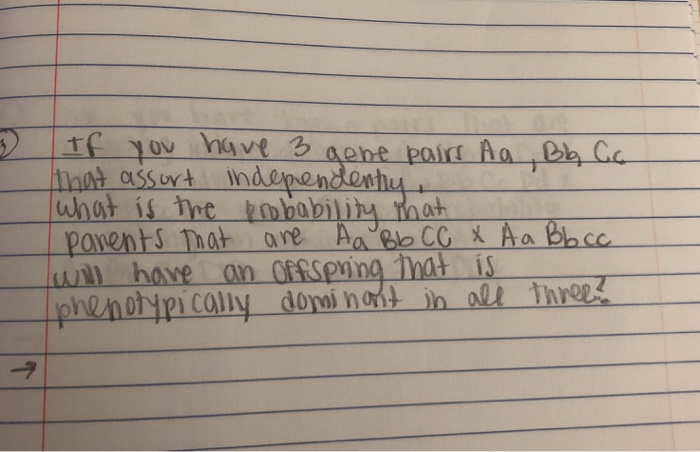 3) If you have 3 gene pairs Aa, Bb, Cc
that assort independently,
what is the probability that
parents that are Aa Bb CC x Aa Bbcc
will have an offspring that is
phenotypically dominant in all three?
→